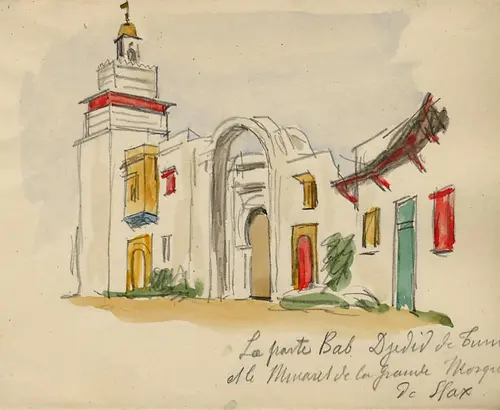 La porte Bab Djedid de Tuni
et le Minaret de la grande Mosqu
de Sfax